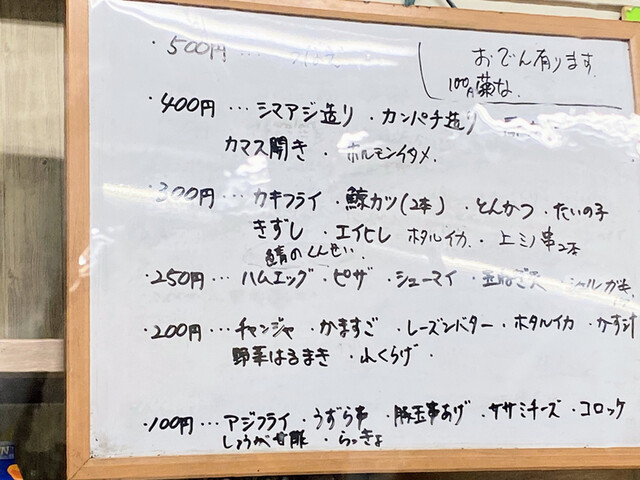 ・500円…
おでん有ります。
・400円…シマアジ造り・カンパチ造り
カマス開き・ホルモンイタメ.
・300円…カキフライ・鯨カツ(2本)・とんかつ・たいの子
きずし・エイヒレ ホタルイカ.・上ミノ串2本
鯖のくんせい
・250円…ハムエッグ・ピザ・シューマイ
・200円…チャンジャ・かますご・レーズンバター・ホタルイカ・かす汁
野菜はるまき・ふくらげ・
・100円…アジフライ・うずら串・豚玉串あげ・ササミチーズ・コロッケ
しょうが甘酢・らっきょ